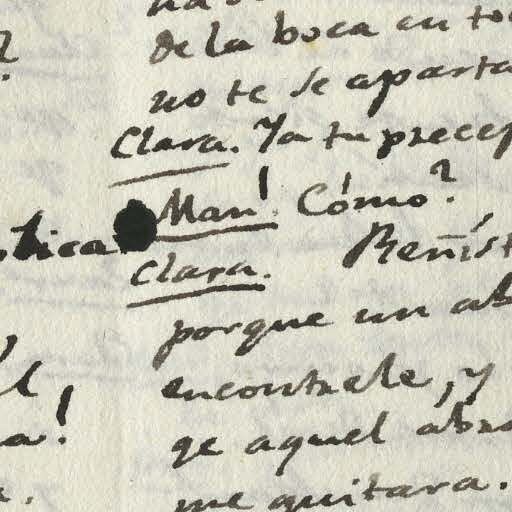 de la boca en to
no te se aparta
Clara. Ya tu precep
Man! Cómo?
blica
Clara. Reñist
porque un ab
encontrele, y
a!
qe aquel abra
me quitara.